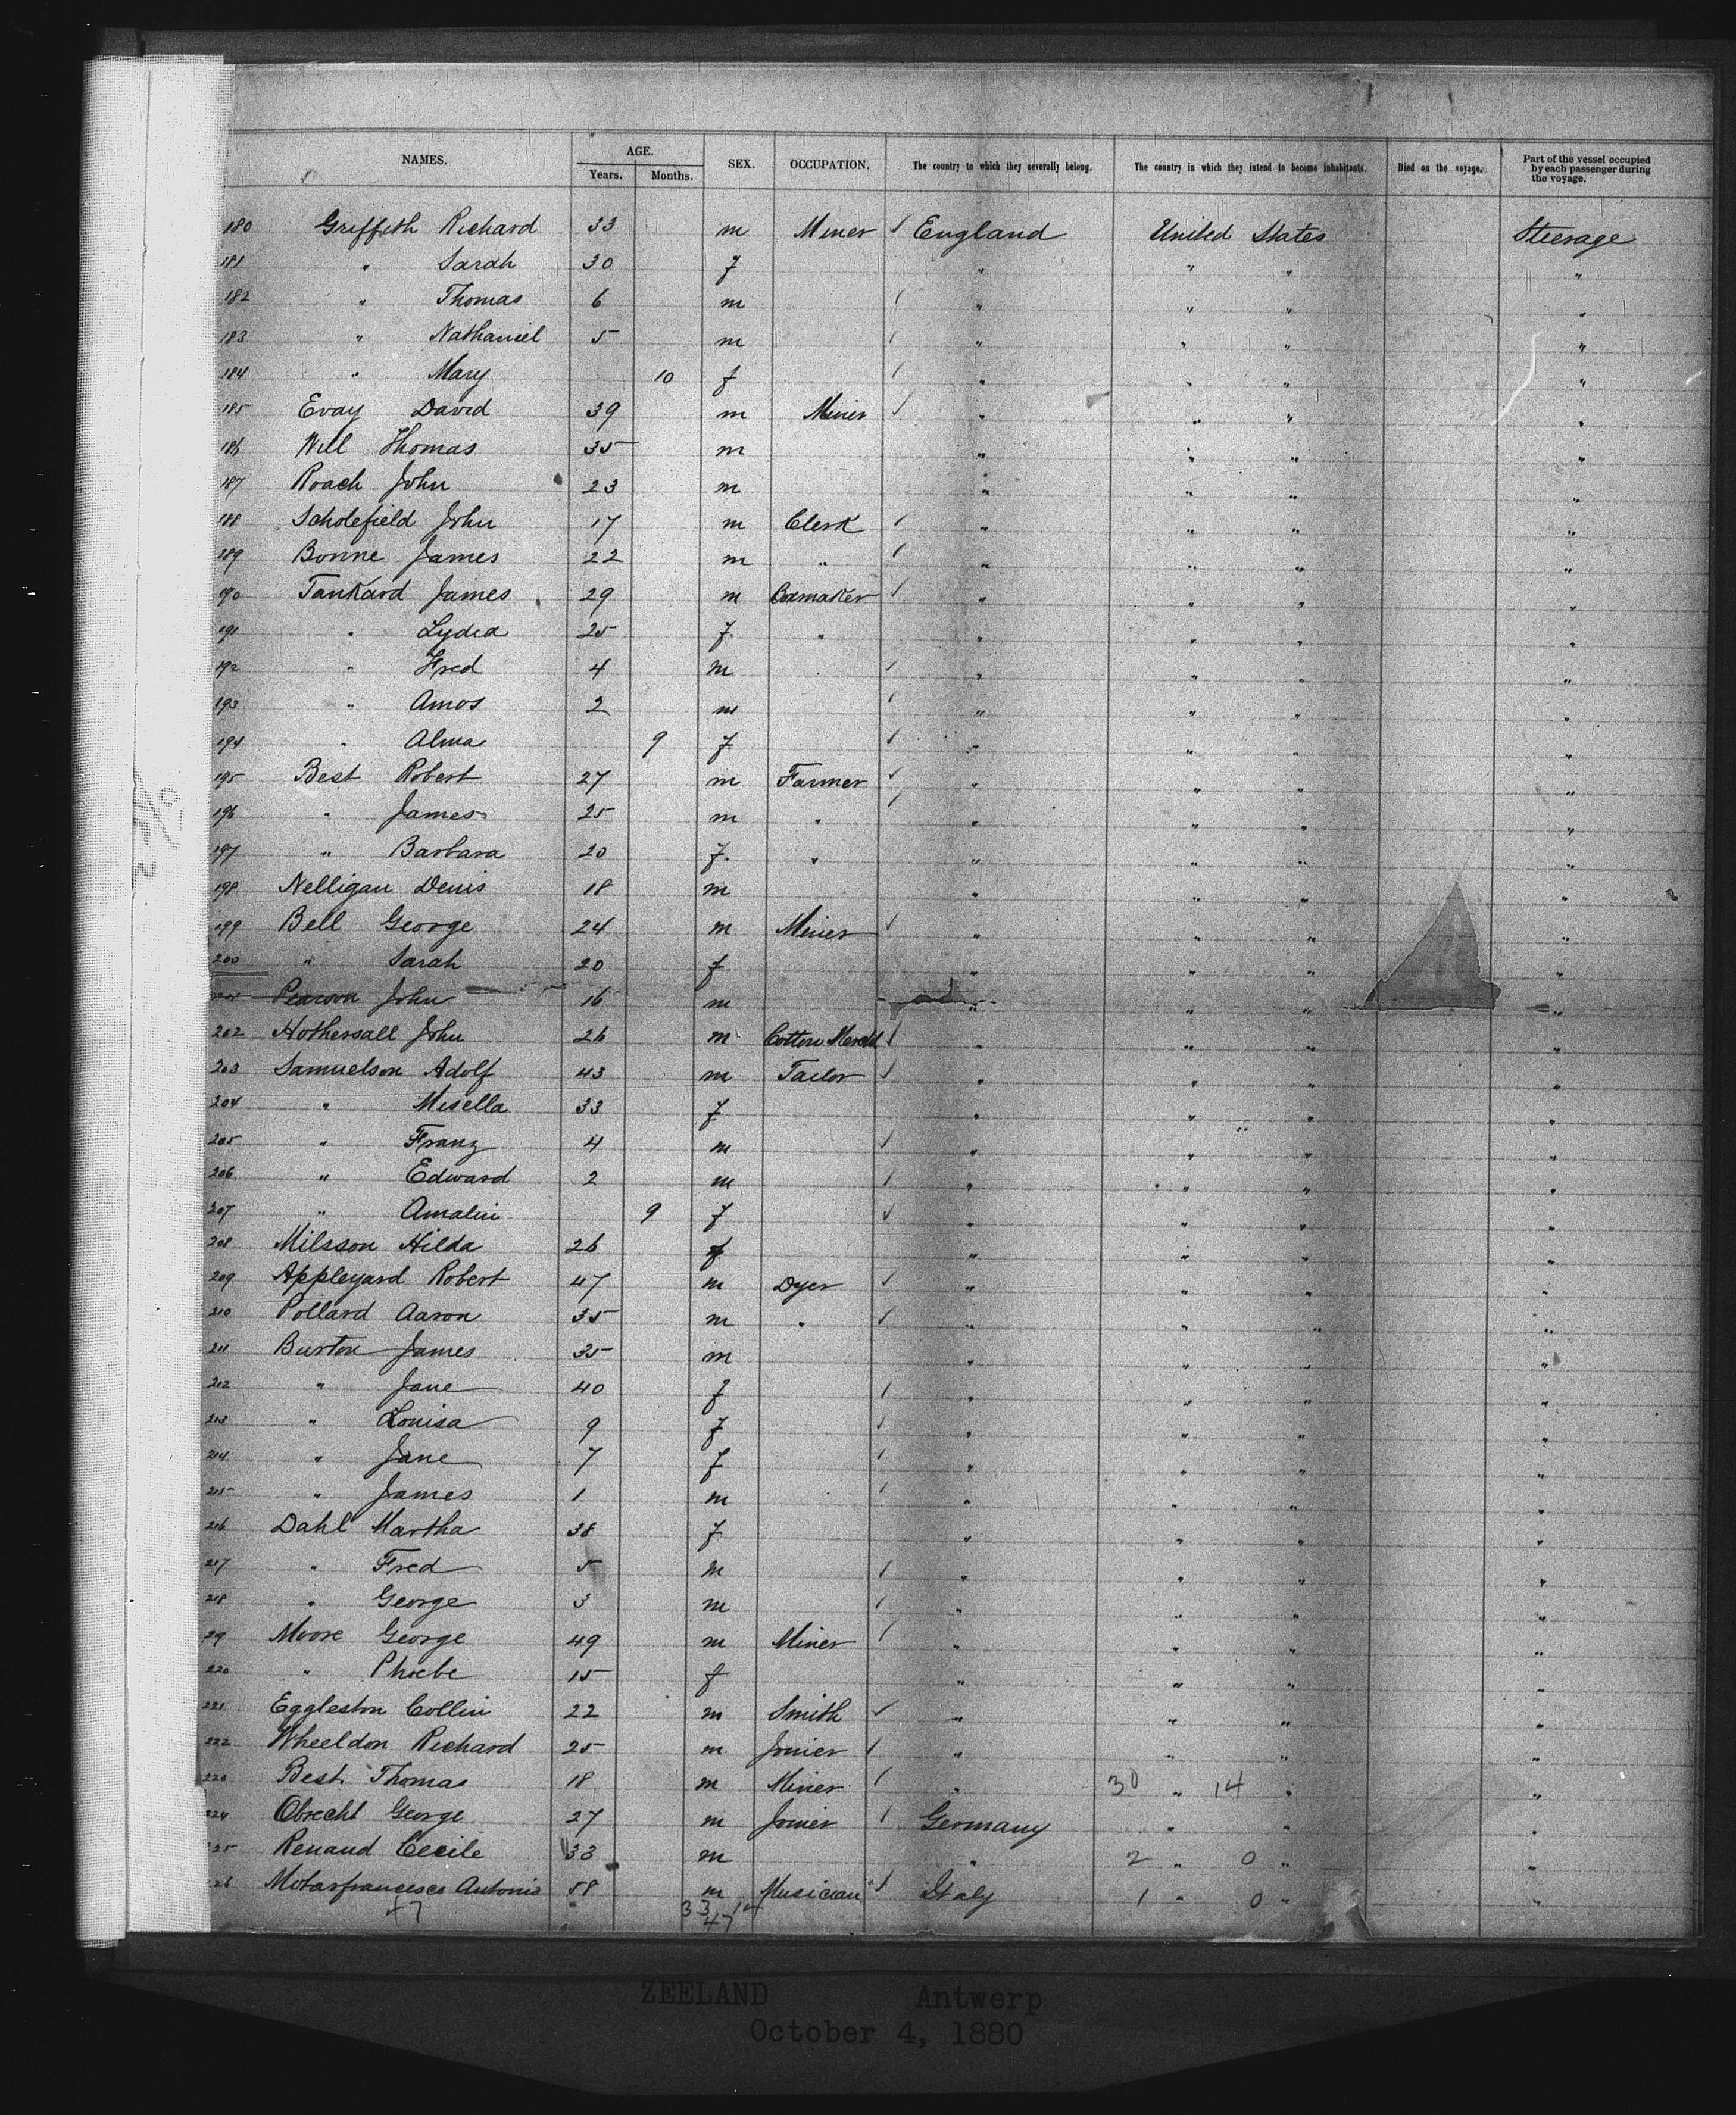 NAMES. AGE. Years. Months. SEX. OCCUPATION. The country to which they severally belong. The country in which they intend to become inhabitants. Died on the voyage. Part of the vessel occupied by each passenger during the voyage.
180 Griffith Richard 33 m Miner England United States Steerage
181 " Sarah 30 f " " " "
182 " Thomas 6 m " " " "
183 " Nathaniel 5 m " " " "
184 " Mary 10 f " " " "
185 Evay David 39 m Miner " " " "
186 Will Thomas 35 m " " " "
187 Roach John 23 m " " " "
188 Scholefield John 17 m Clerk " " " "
189 Bonne James 22 m " " " " "
190 Tankard James 29 m Boxmaker " " " "
191 " Lydia 25 f " " " " "
192 " Fred 4 m " " " "
193 " Amos 2 m " " " "
194 " Alma 9 f " " " "
195 Best Robert 27 m Farmer " " " "
196 " James 25 m " " " " "
197 " Barbara 20 f " " " " "
198 Nelligan Denis 18 m " " " "
199 Bell George 24 m Miner " " " "
200 " Sarah 20 f " " " "
Pearson John 16 m " " " "
202 Hothersall John 26 m Cotton " " " "
203 Samuelson Adolf 43 m Tailor " " " "
204 " Misella 33 f " " " "
205 " Franz 4 m " " " "
206 " Edward 2 m " " " "
207 " Amalin 9 f " " " "
208 Milsson Hilda 26 f " " " "
209 Appleyard Robert 47 m Dyer " " " "
210 Pollard Aaron 35 m " " " " "
211 Burton James 35 m " " " "
212 " Jane 40 f " " " "
213 " Louisa 9 f " " " "
214 " Jane 7 f " " " "
215 " James 1 m " " " "
216 Dahl Martha 38 f " " " "
217 " Fred 5 m " " " "
218 " George 3 m " " " "
29 Moore George 49 m Miner " " " "
220 " Phoebe 15 f " " " "
221 Eggleston Collin 22 m Smith " " " "
222 Wheeldon Richard 25 m Joiner " " " "
223 Best Thomas 18 m Miner " 30 " 14 " "
224 Obrecht George 27 m Joiner Germany " " "
25 Renaud Cecile 33 m " 2 " 0 " "
26 Motarfrancesco Antonio 58 m Musician Italy 1 " 0 " "
47 33 14
47
ZEELAND Antwerp
October 4, 1880